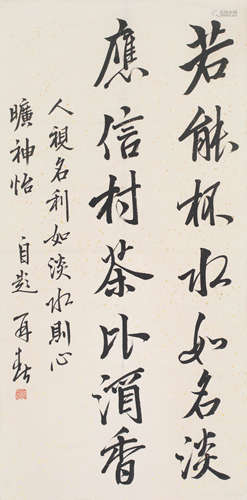 若能杯水如名淡
應信村茶比酒香
人視名利如淡水則心
曠神怡 自題 再春